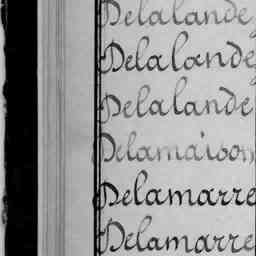 Delalande
Delalande
Delalande
Delamaison
Delamarre
Delamarre